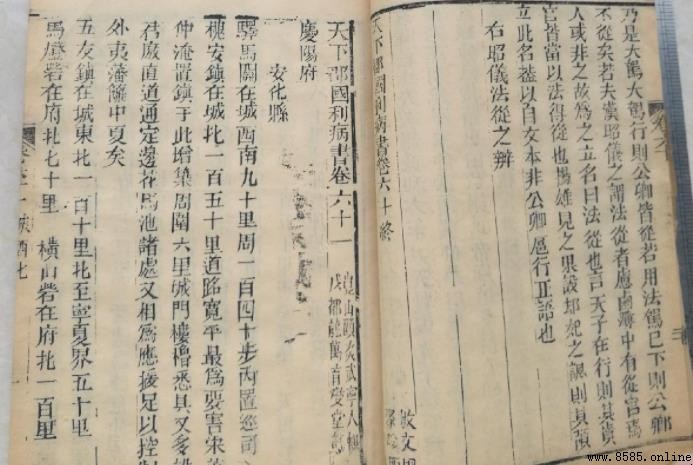 乃是大駕大駕行則公卿皆從若用法駕已下則公卿
不從矣若夫漢昭儀之謂法從者應鹵簿中有從官焉
人或非之故為之立名曰法從也言天子在行則其嬪
官皆當以法得從也揚雄見之果設却妃之諷則其預
立此名蓋以自文本非公卿扈行正語也
右昭儀法從之辨
天下郡國利病書卷六十終
天下郡國利病書卷六十一
崑山顧炎武寧人輯
成都龍萬育燮堂
慶陽府
安化縣
驛馬關在城西南九十里周一百四十步內置巡司
槐安鎮在城北一百五十里道路寬平最為要害宋范
仲淹置鎮于此增築周圍六里城門樓櫓悉具又多
君廢直道通定邊花馬池諸處又相為應援足以控制
外夷藩籬中夏矣
五友鎮在城東北一百十里北至寧夏界五十里
馬嶺砦在府北七十里 橫山砦在府北一百里
www.8585.online